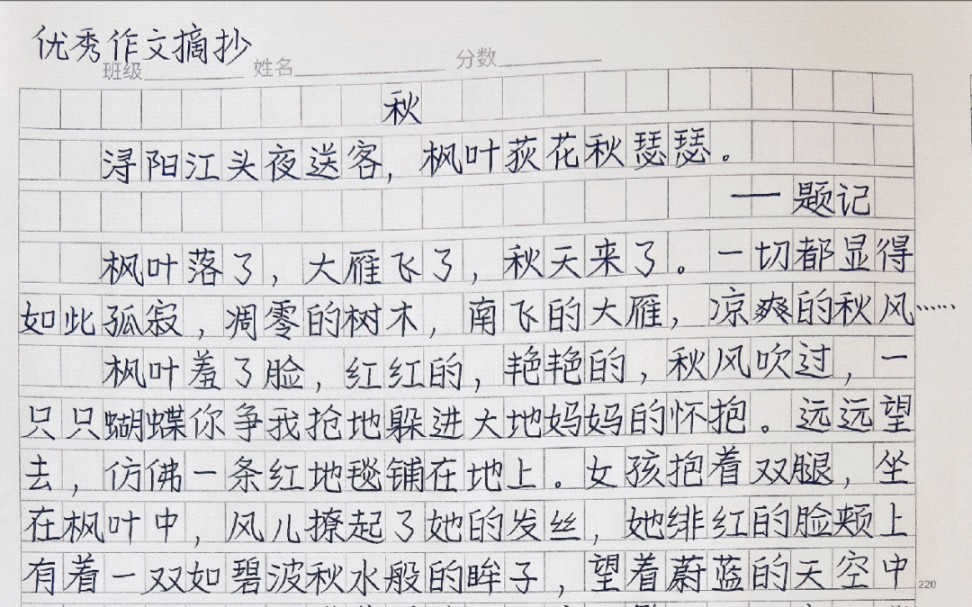 优秀作文摘抄
班级 姓名 分数
秋
浔阳江头夜送客，枫叶荻花秋瑟瑟。
——题记
枫叶落了，大雁飞了，秋天来了。一切都显得
如此孤寂，凋零的树木，南飞的大雁，凉爽的秋风……
枫叶羞了脸，红红的，艳艳的，秋风吹过，一
只只蝴蝶你争我抢地躲进大地妈妈的怀抱。远远望
去，仿佛一条红地毯铺在地上。女孩抱着双腿，坐
在枫叶中，风儿撩起了她的发丝，她绯红的脸颊上
有着一双如碧波秋水般的眸子，望着蔚蓝的天空中
220